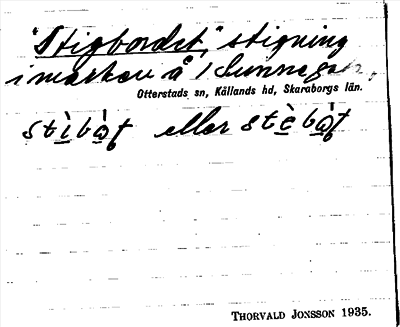 "Stigbordet," stigning
i marken å 1 Sunnega
Otterstads sn, Kållands hd, Skaraborgs län.
stìbàt eller stèbàt
THORVALD JONSSON 1935.